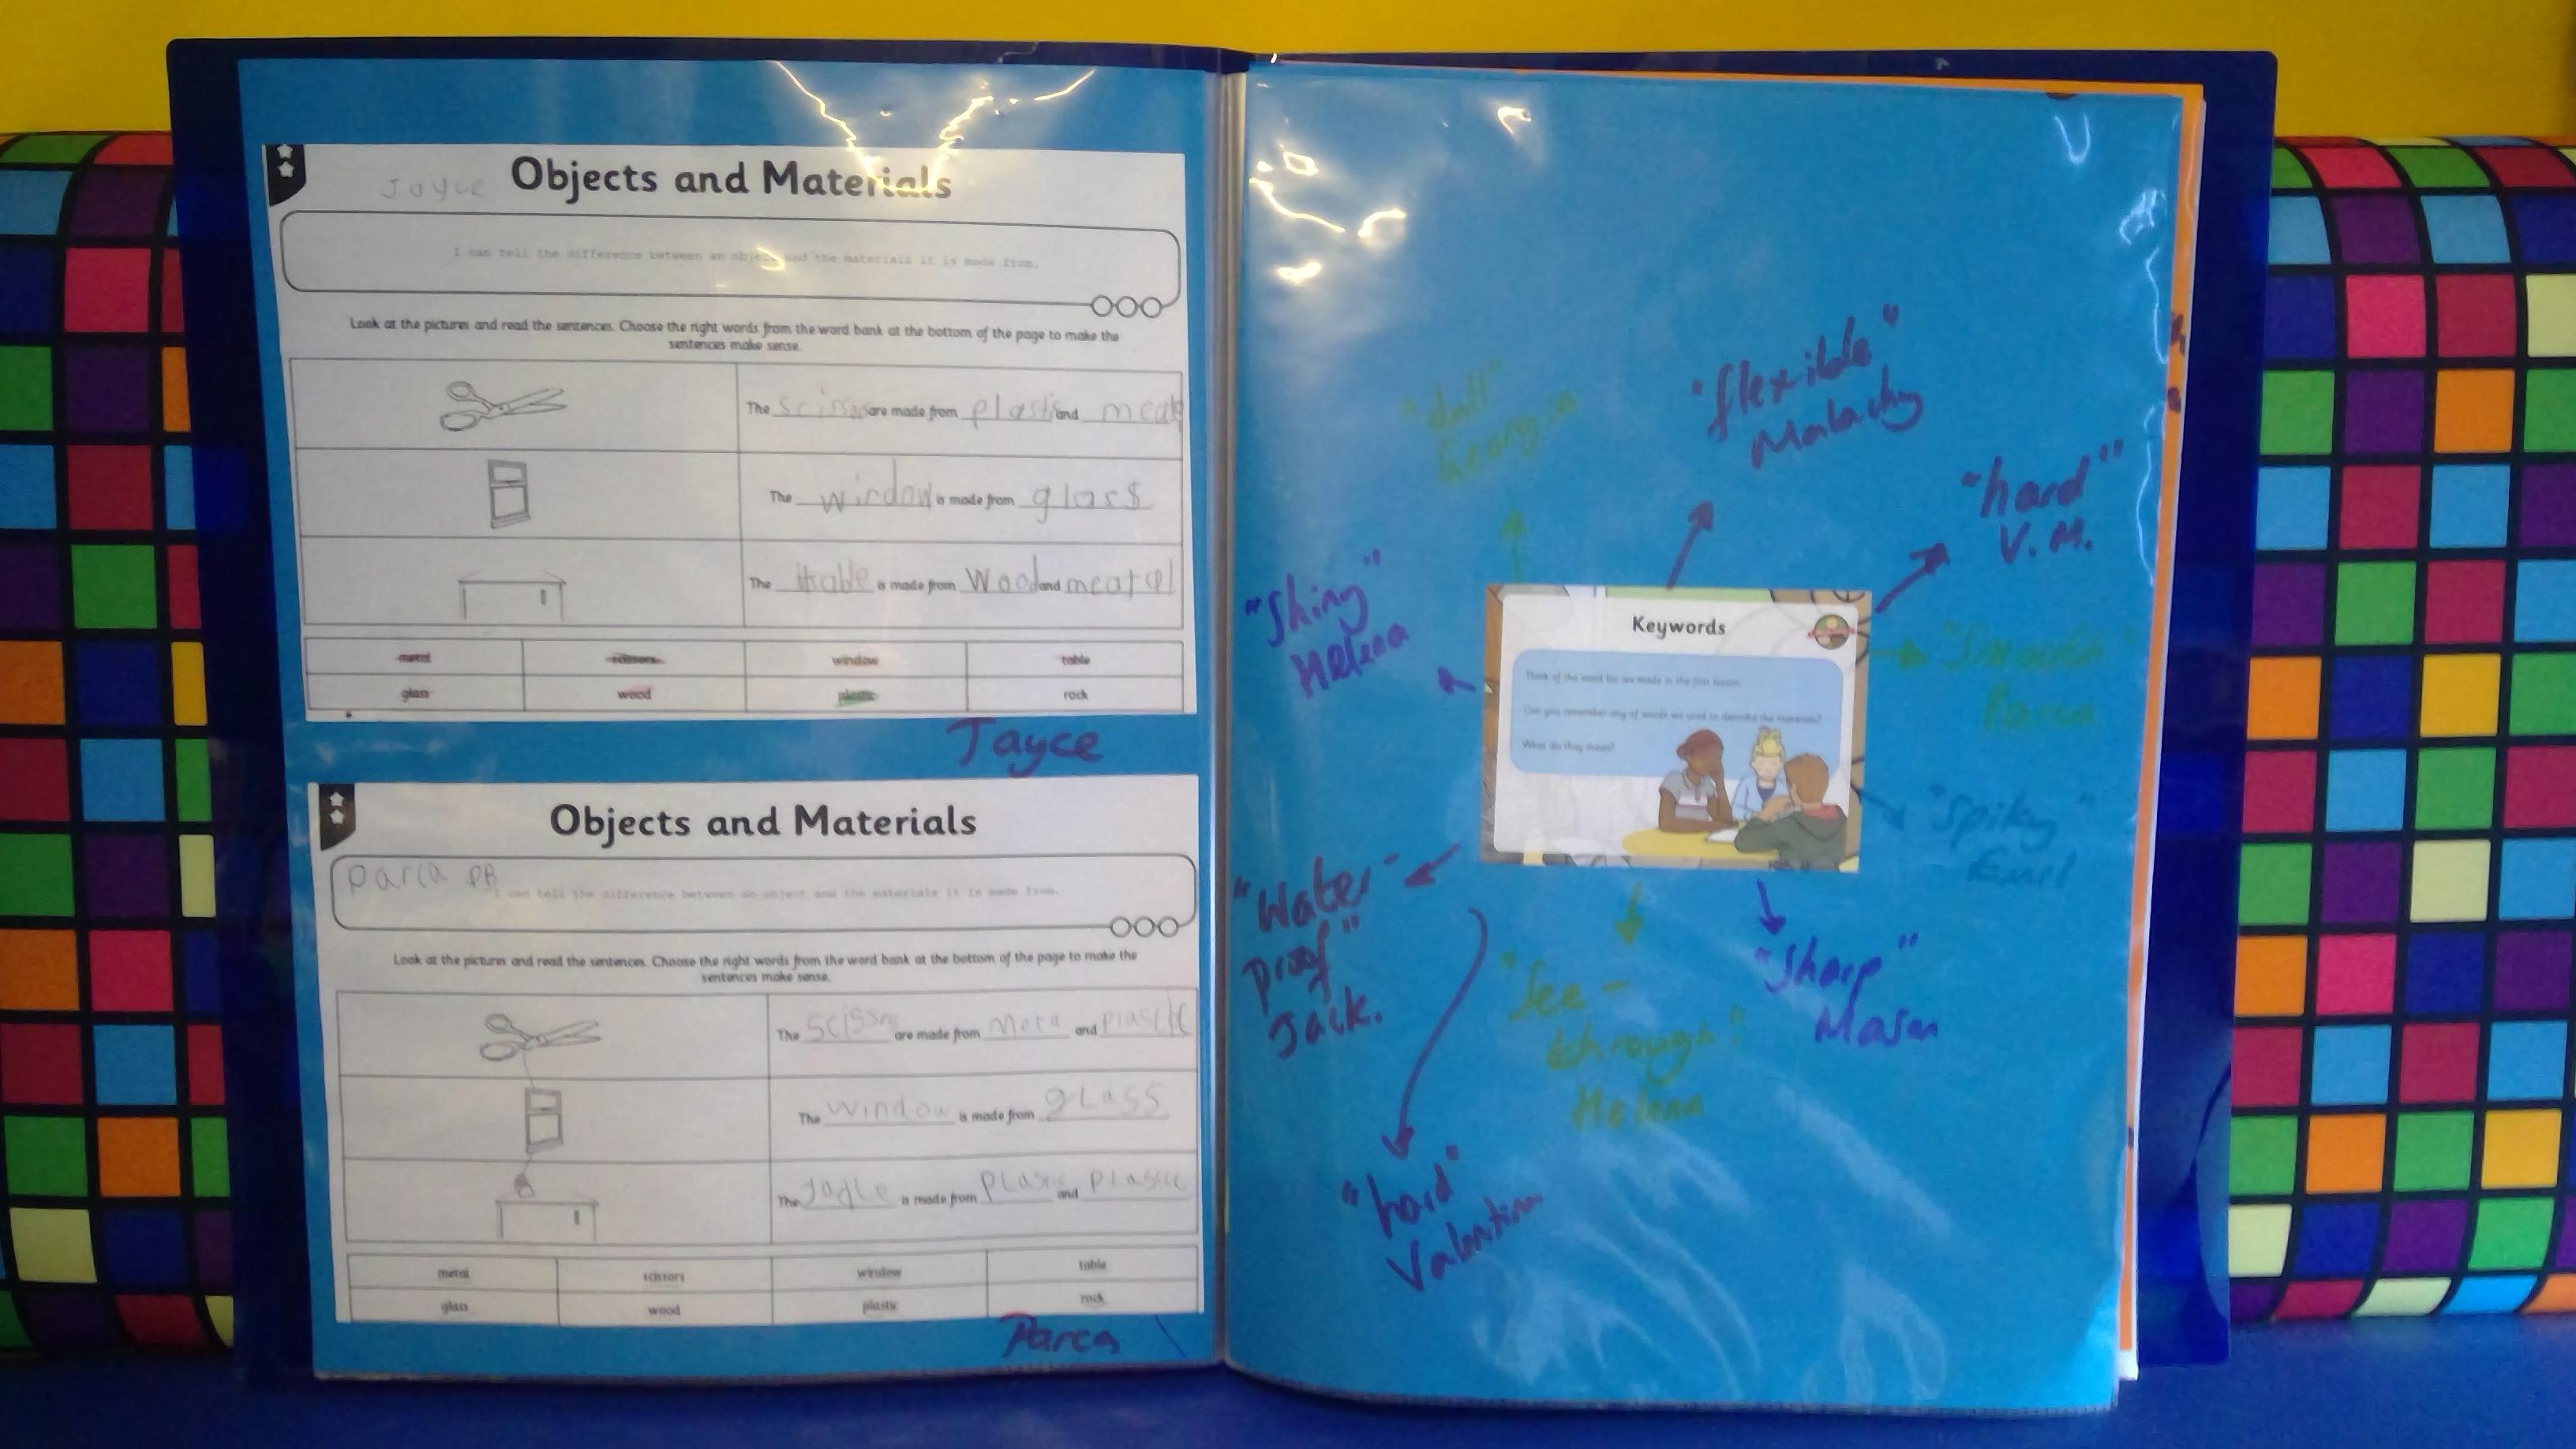 Jayce
Objects and Materials
I can tell the difference between an object and the materials it is made from.
Look at the pictures and read the sentences. Choose the right words from the word bank at the bottom of the page to make the
sentences make sense.
The scissors are made from plastic and meatl
The window is made from glass
The ttable is made from wood and meatal
metal scissors window table
glass wood plastic rock
Jayce
Objects and Materials
Parca PB
I can tell the difference between an object and the materials it is made from.
Look at the pictures and read the sentences. Choose the right words from the word bank at the bottom of the page to make the
sentences make sense.
The are made from Meta and
The window is made from gLass
The is made from pLastic and
metal scissors window table
glass wood plastic rock
Parca
"dull"
Georgia
"flexible"
Malachy
"hard"
V.M.
"Shiny"
Helena
Keywords
Think of the word list we made in the first lesson.
Can you remember any of words we used to describe the materials?
What do they mean?
"Smooth"
Parca
"Spiky"
"Water-
proof"
Jack.
"See-
through"
Helena
"Sharp"
Mason
"hard"
Valentina